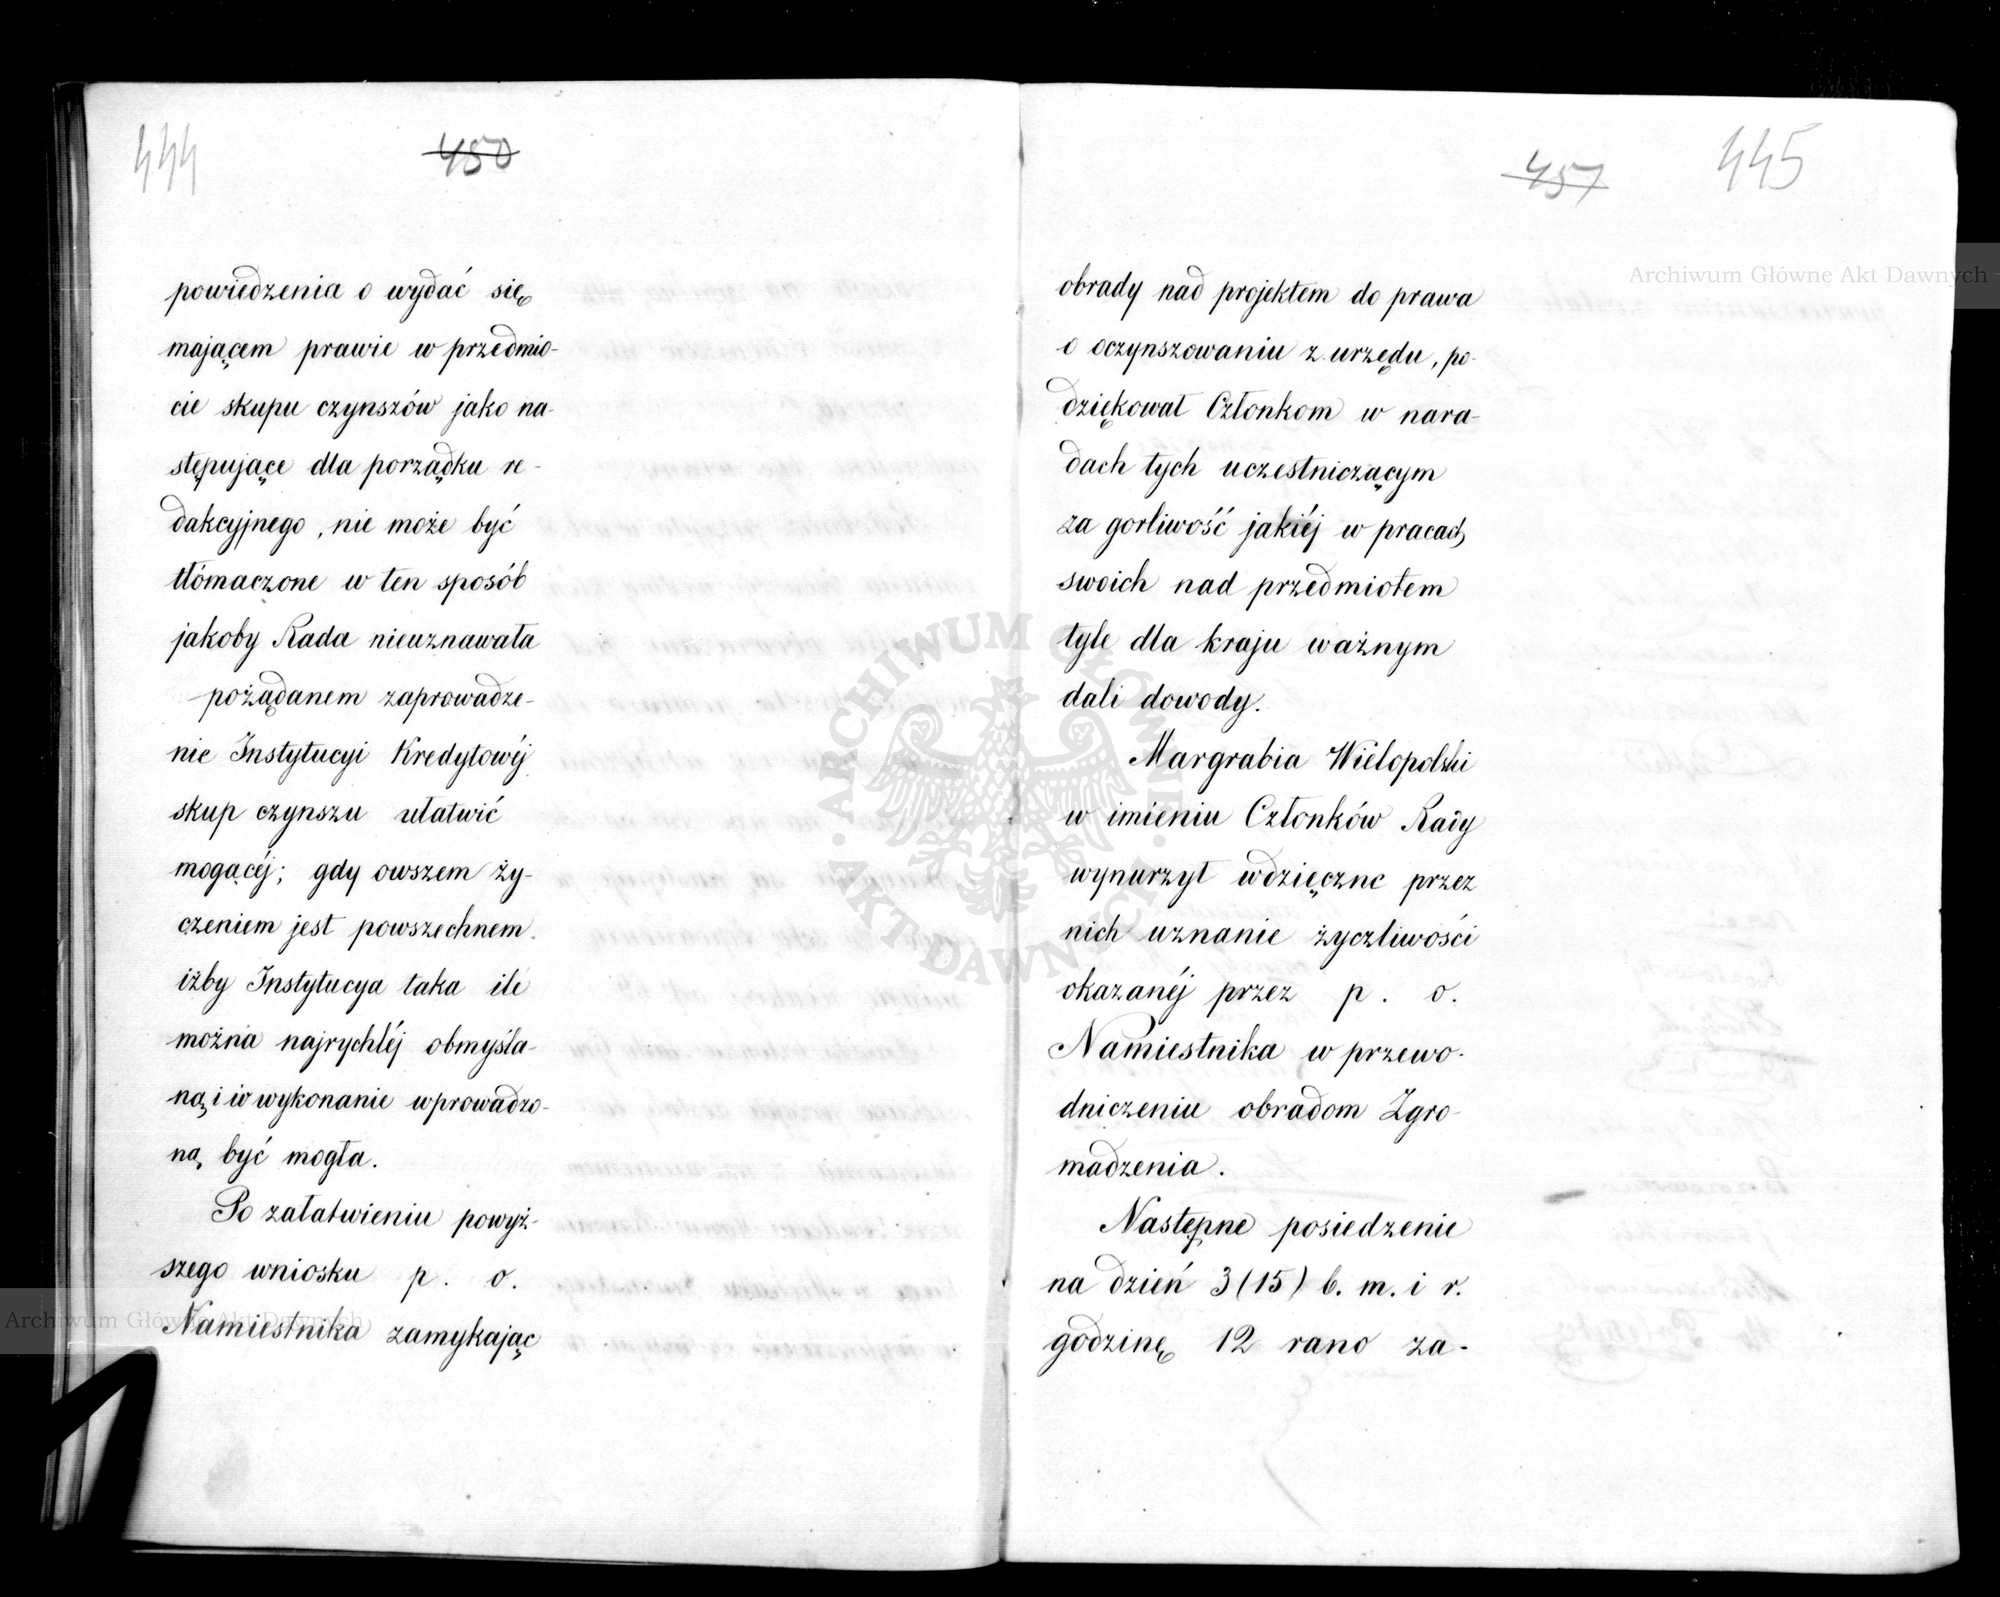 444
450
powiedzenia o wydać się
mającem prawie w przedmio-
cie skupu czynszów jako na-
stępujące dla porządku re-
dakcyjnego, nie może być
tłómaczone w ten sposób
jakoby Rada nieuznawała
pożądanem zaprowadze-
nie Instytucyi Kredytowéj
skup czynszu ułatwić
mogącéj; gdy owszem ży-
czeniem jest powszechnem
iżby Instytucya taka ile
można najrychléj obmyśla-
ną i w wykonanie wprowadzo-
ną być mogła.
Po załatwieniu powyż-
szego wniosku p. o.
Namiestnika zamykając
457
445
obrady nad projektem do prawa
o oczynszowaniu z urzędu, po-
dziękował Członkom w nara-
dach tych uczestniczącym
za gorliwość jakiéj w pracach
swoich nad przedmiotem
tyle dla kraju ważnym
dali dowody.
Margrabia Wielopolski
w imieniu Członków Rady
wynurzył wdzięczne przez
nich uznanie życzliwości
okazanéj przez p. o.
Namiestnika w przewo-
dniczeniu obradom Zgro-
madzenia.
Następne posiedzenie
na dzień 3 (15) b. m. i r.
godzinę 12 rano za-
Archiwum Główne Akt Dawnych
Archiwum Główne Akt Dawnych
ARCHIWUM GŁÓWNE AKT DAWNYCH